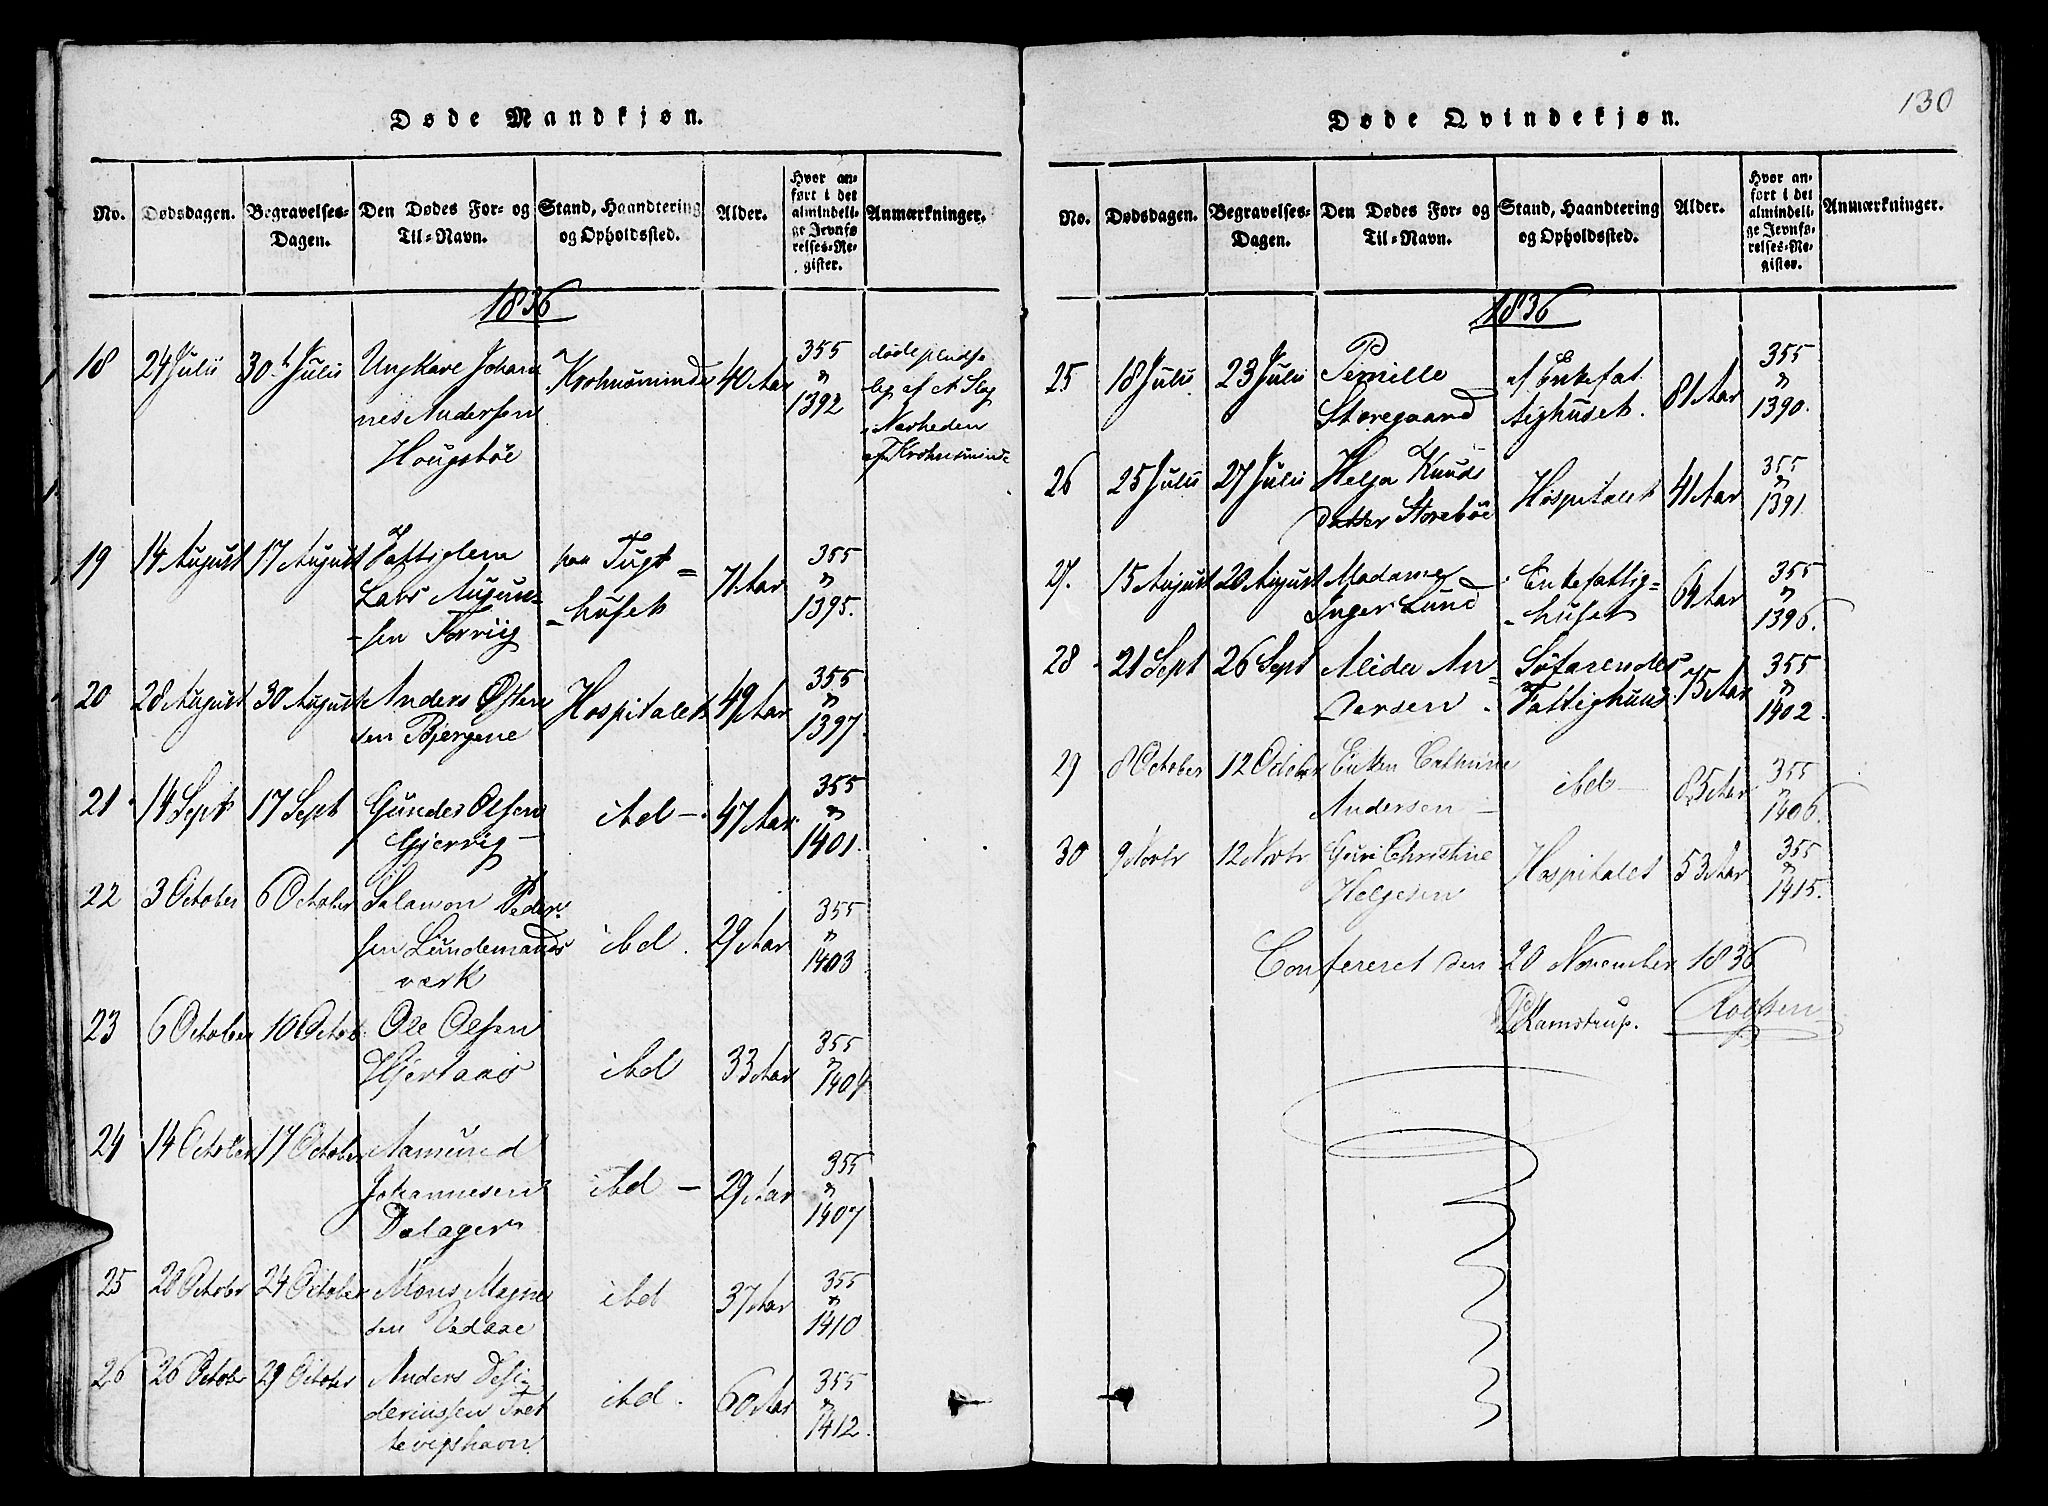 Døde Mandkjøn.
No. Dødsdagen. Begravelses-Dagen. Den Dødes For- og Til-Navn. Stand, Haandtering og Opholdssted. Alder. Hvor anført i det almindelige Jevnførelses-Register. Anmærkninger.
1836
18 24 Julii 30t Julii Ungkarl Johan Krohnsminde 40 Aar 355 døde plud
nes Andersen 1392 lig af et Slag
Hougsbøe i Nærheden
af Krohnsminde
19 14 August 17 August Fattiglem paa Tugt= 71 Aar 355
Lars Augun= =huset 1395.
=sen Torvig
20 28 August 30 August Anders Østen Hospitalet 49 Aar 355
sen Bjergene 1397.
21 14 Sept 17 Sept Gunder Olsen ibd — 47 Aar 355
Gjervig — 1401.
22 3 October 6 October Salamon Peder= ibd. 29 Aar 355
sen Lundemands 1403
værk
23 6 October 10 Octob. Ole Olsen ibd 33 Aar 355
Hjertaas 1404
24 14 October 17 October Aamund ibd — 29 Aar 355
Johannesen 1407
Dalager
25 20 Octobr 24 October Mons Magne ibd 37 Aar 355
sen Vedaae 1410
26 26 Octobr 29 Octobr Anders Desi= ibd. 60 Aar 355
deriussen Tret 1412.
tevigshavn
Døde Qvindekjøn.
130
No. Dødsdagen. Begravelses-Dagen. Den Dødes For- og Til-Navn. Stand, Haandtering og Opholdssted. Alder. Hvor anført i det almindelige Jevnførelses-Register. Anmærkninger.
1836
25 18 Julii 23 Julii Pernille af Enkefat 81 Aar 355
Storegaard tighuset. 1390.
26 25 Julii 27 Julii Helga Knuds Hospitalet 41 Aar 355
Datter Storebøe 1391
27. 15 August 20 August Madame Enkefattig= 64 Aar 355
Inger Lund =huset 1396.
28 21 Sept 26 Sept Alida An= Søfarendes 75 Aar 355
dersen. Fattighuus. 1402.
29 8 October 12 Octobr Enken Cathrine ibd — 85 Aar 355
Andersen — 1406.
30 9 Novbr 12 Novbr Guri Christine Hospitalet 53 Aar 355
Helgesen 1415.
Confereret den 20 November 1836
Kamstrup.